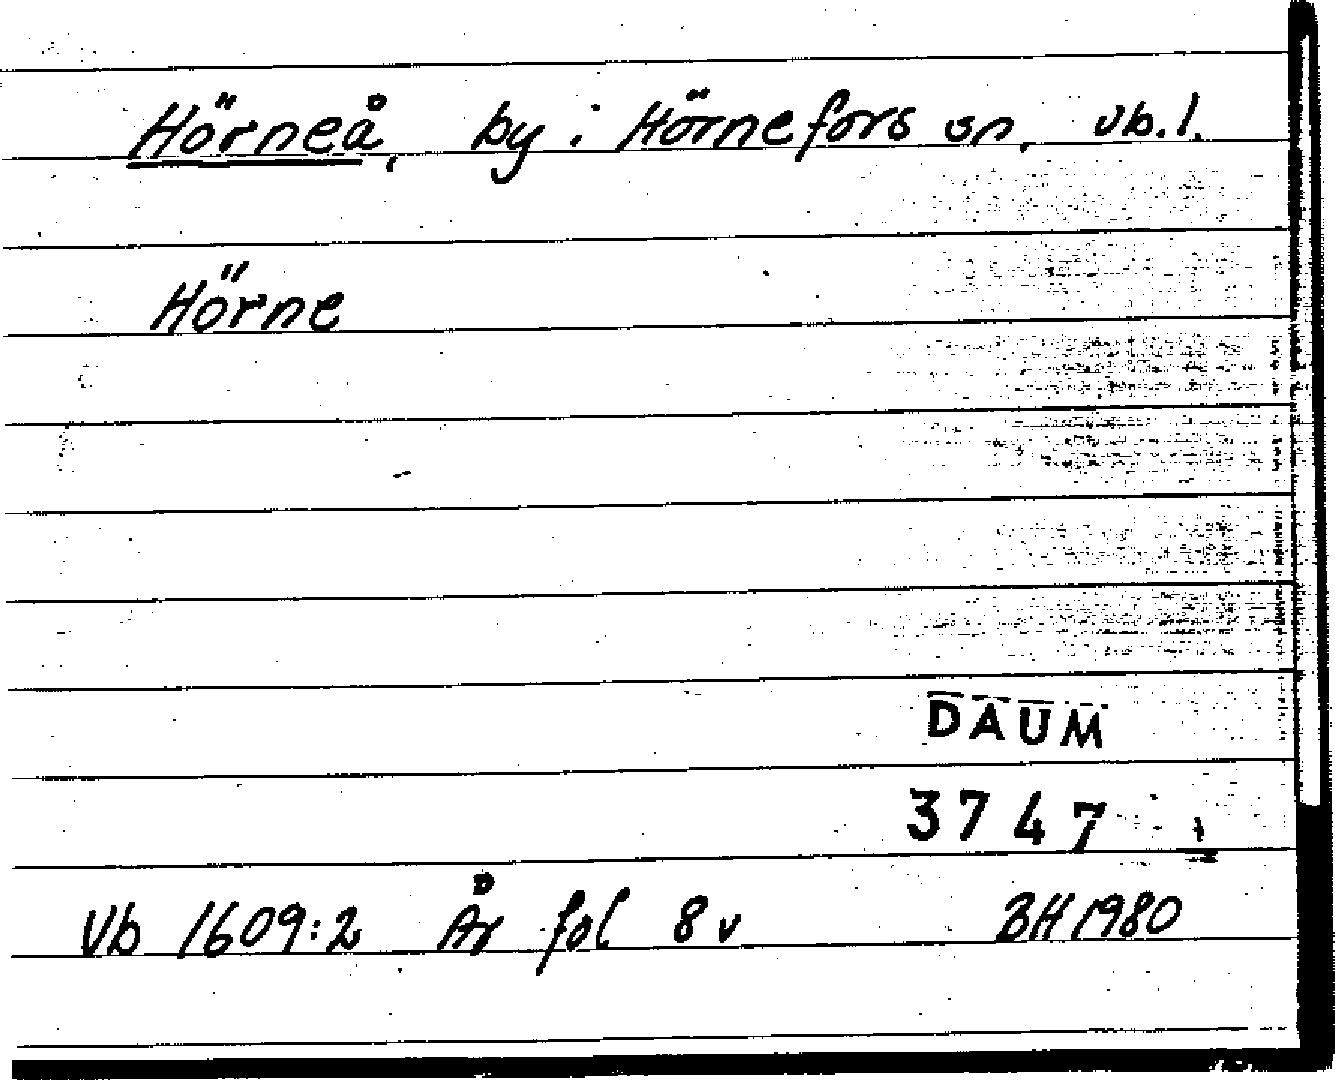 Hörneå, by i Hörnefors sn, Vb.l.
Hörne
DAUM
3747
Vb 1609:2 År fol 8v BH 1980